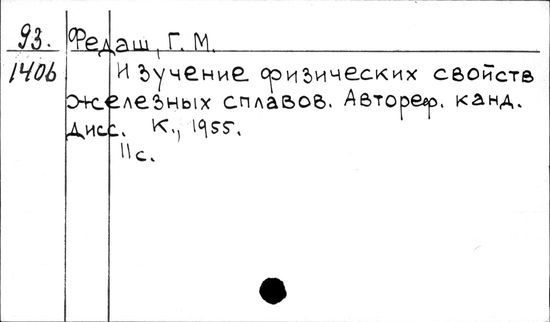 93. Федаш, Г. М.
1406 Изучение физических свойств
железных сплавов. Автореф. канд.
дисс. К., 1955.
11с.